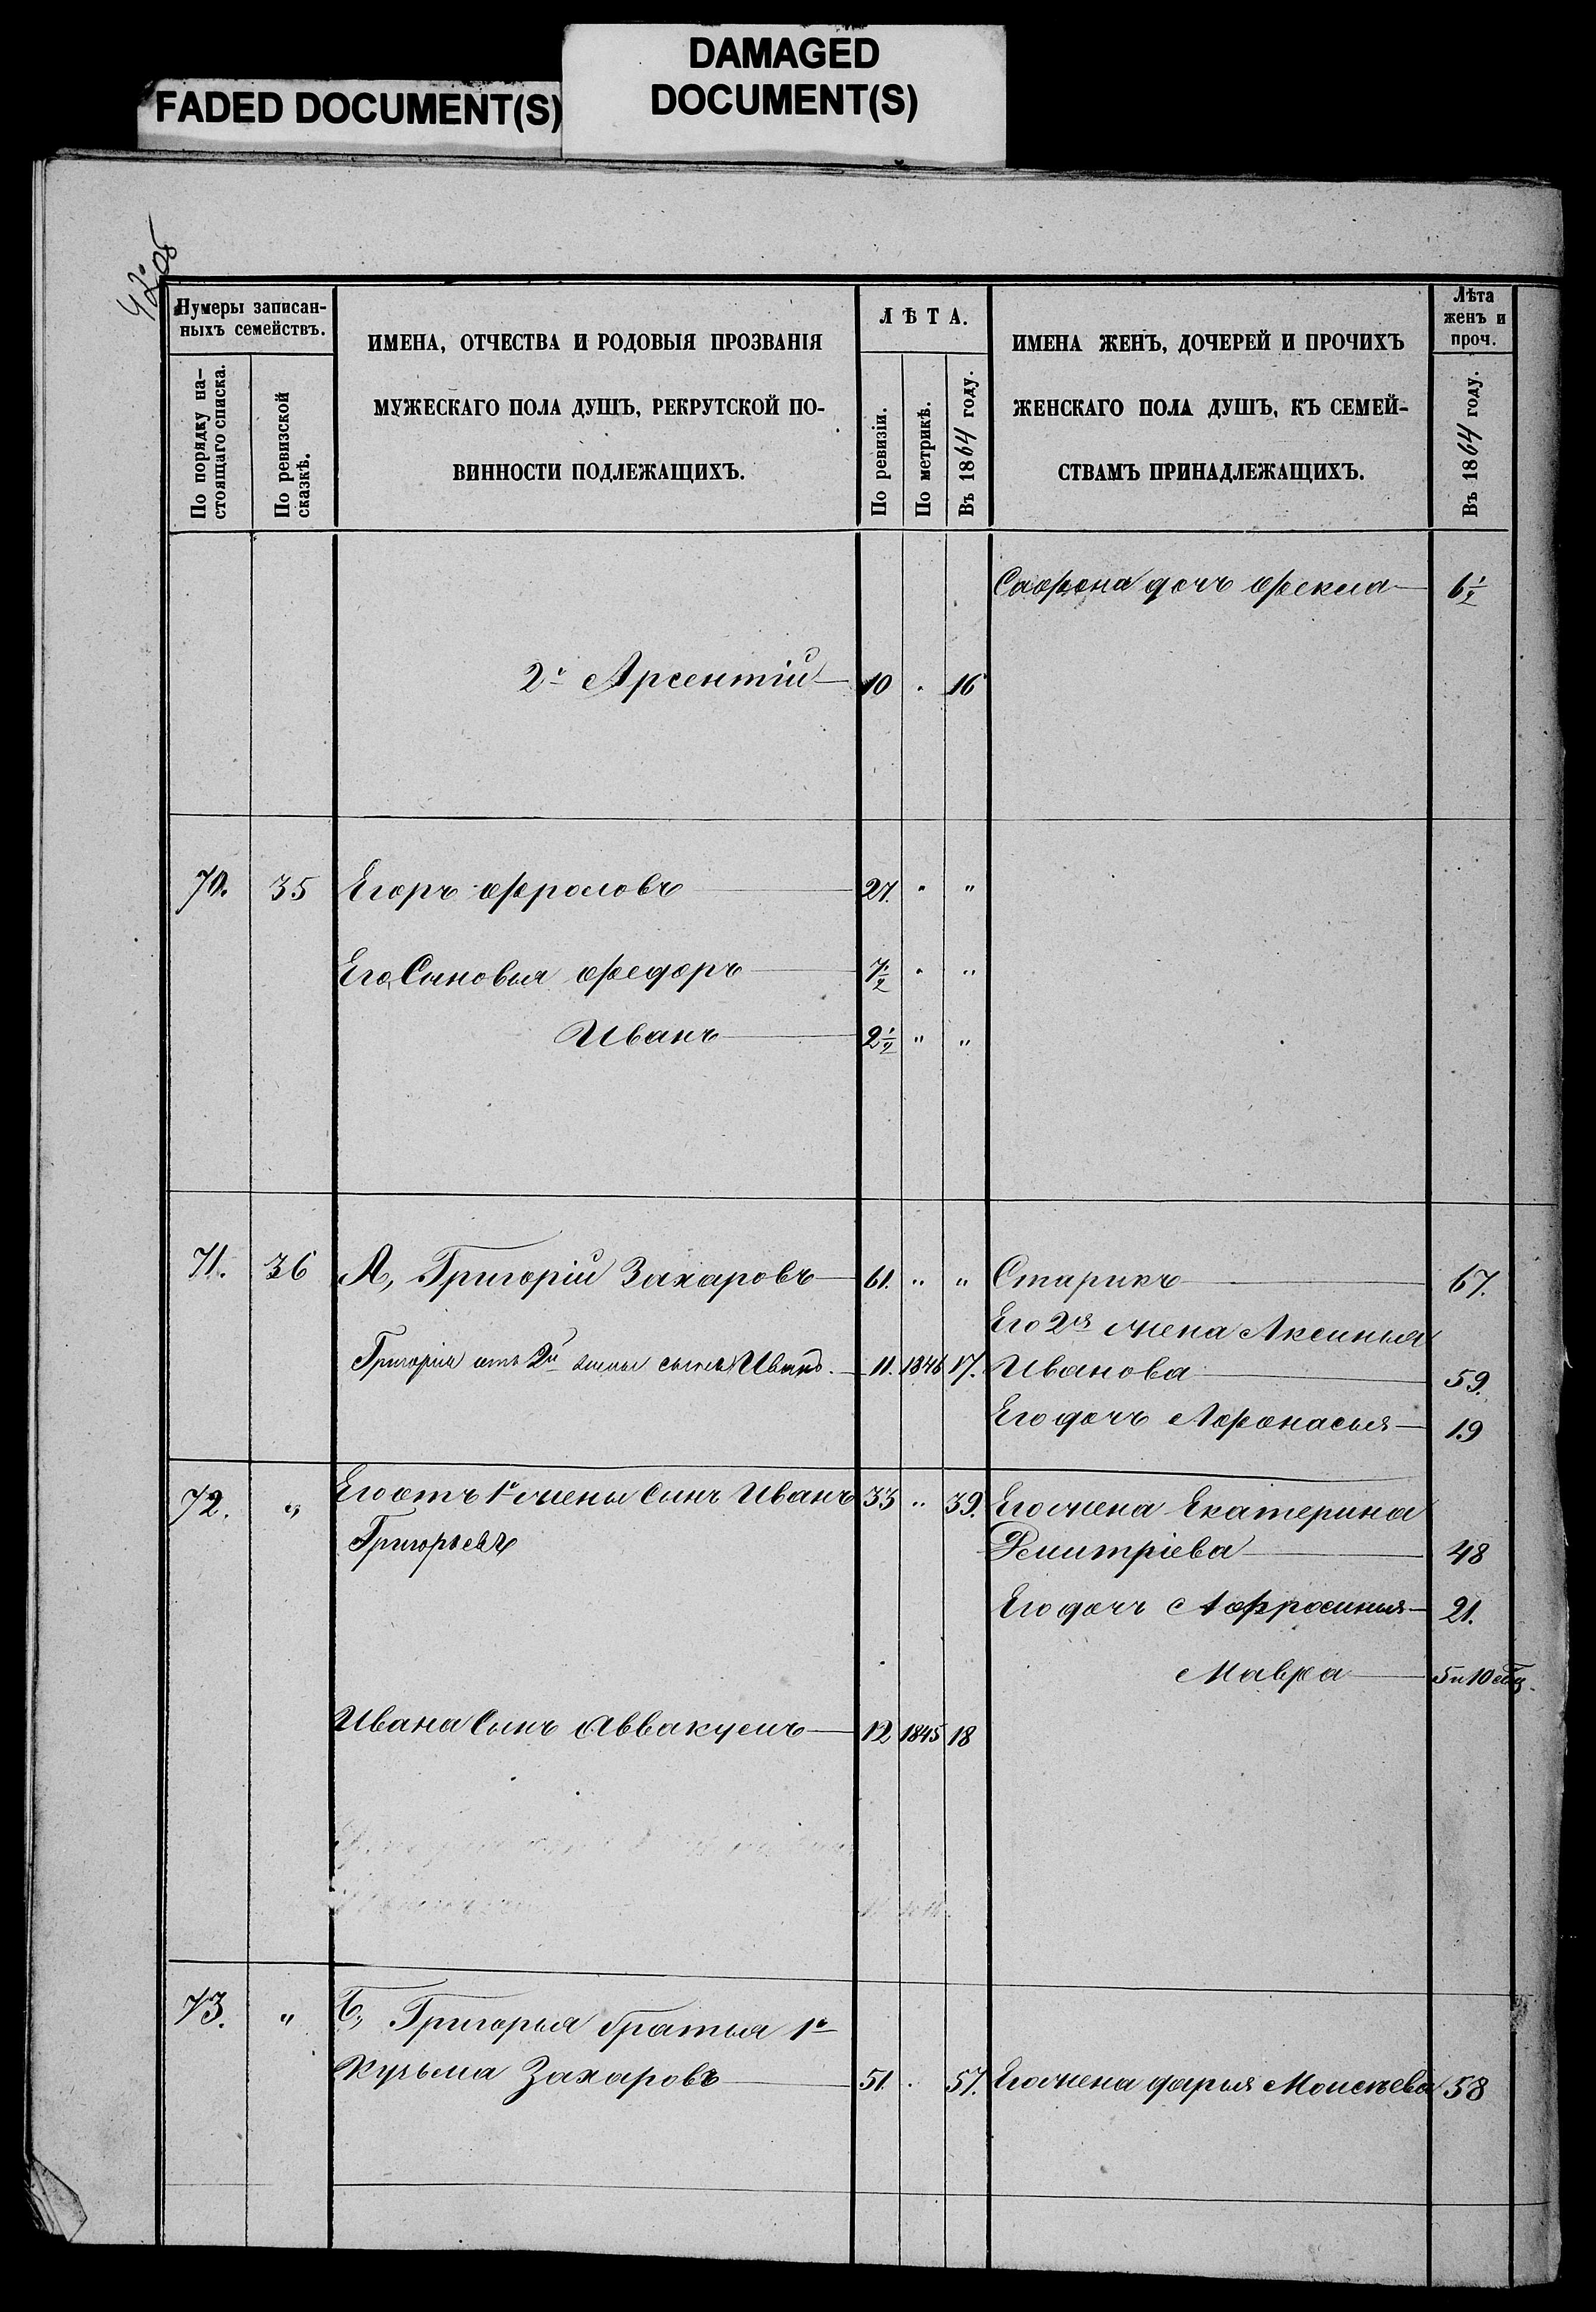 DAMAGED
DOCUMENT(S)
FADED DOCUMENT(S)
Нумеры записан-
ныхъ семействъ.
По порядку на-
стоящаго списка.
По ревизской
сказкѣ.
ИМЕНА, ОТЧЕСТВА И РОДОВЫЯ ПРОЗВАНІЯ
МУЖЕСКАГО ПОЛА ДУШЪ, РЕКРУТСКОЙ ПО-
ВИННОСТИ ПОДЛЕЖАЩИХЪ.
ЛѢТА.
По ревизіи.
По метрикѣ.
Въ 1864 году.
ИМЕНА ЖЕНЪ, ДОЧЕРЕЙ И ПРОЧИХЪ
ЖЕНСКАГО ПОЛА ДУШЪ, КЪ СЕМЕЙ-
СТВАМЪ ПРИНАДЛЕЖАЩИХЪ.
Лѣта
женъ и
проч.
Въ 1864 году.
Сафона дочь Фекла 6½
2й Арсентій 10 . 16
70. 35 Егоръ Фроловъ 27. " "
Его Сыновья Федоръ 7½ " "
Иванъ 2½ " "
71. 36 А, Григорій Захаровъ 61. " " Старикъ 67.
Его 2я жена Аксинья
Григорія отъ 2й жены сынъ Иванъ. 11. 1846 17. Иванова 59.
Его дочь Афонасья 19
72. " Его отъ 1й жены Сынъ Иванъ 33 " 39. Его жена Екатерина
Григорьевъ Демитріева 48
Его дочь Афросинья 21.
Мавра 5 и 10 мѣц.
Ивана Сынъ Аввакумъ 12 1845 18
73. " Б, Григорья братья 1й
Кузьма Захаровъ 51. . 57. Его жена Дарья Моисѣева 58